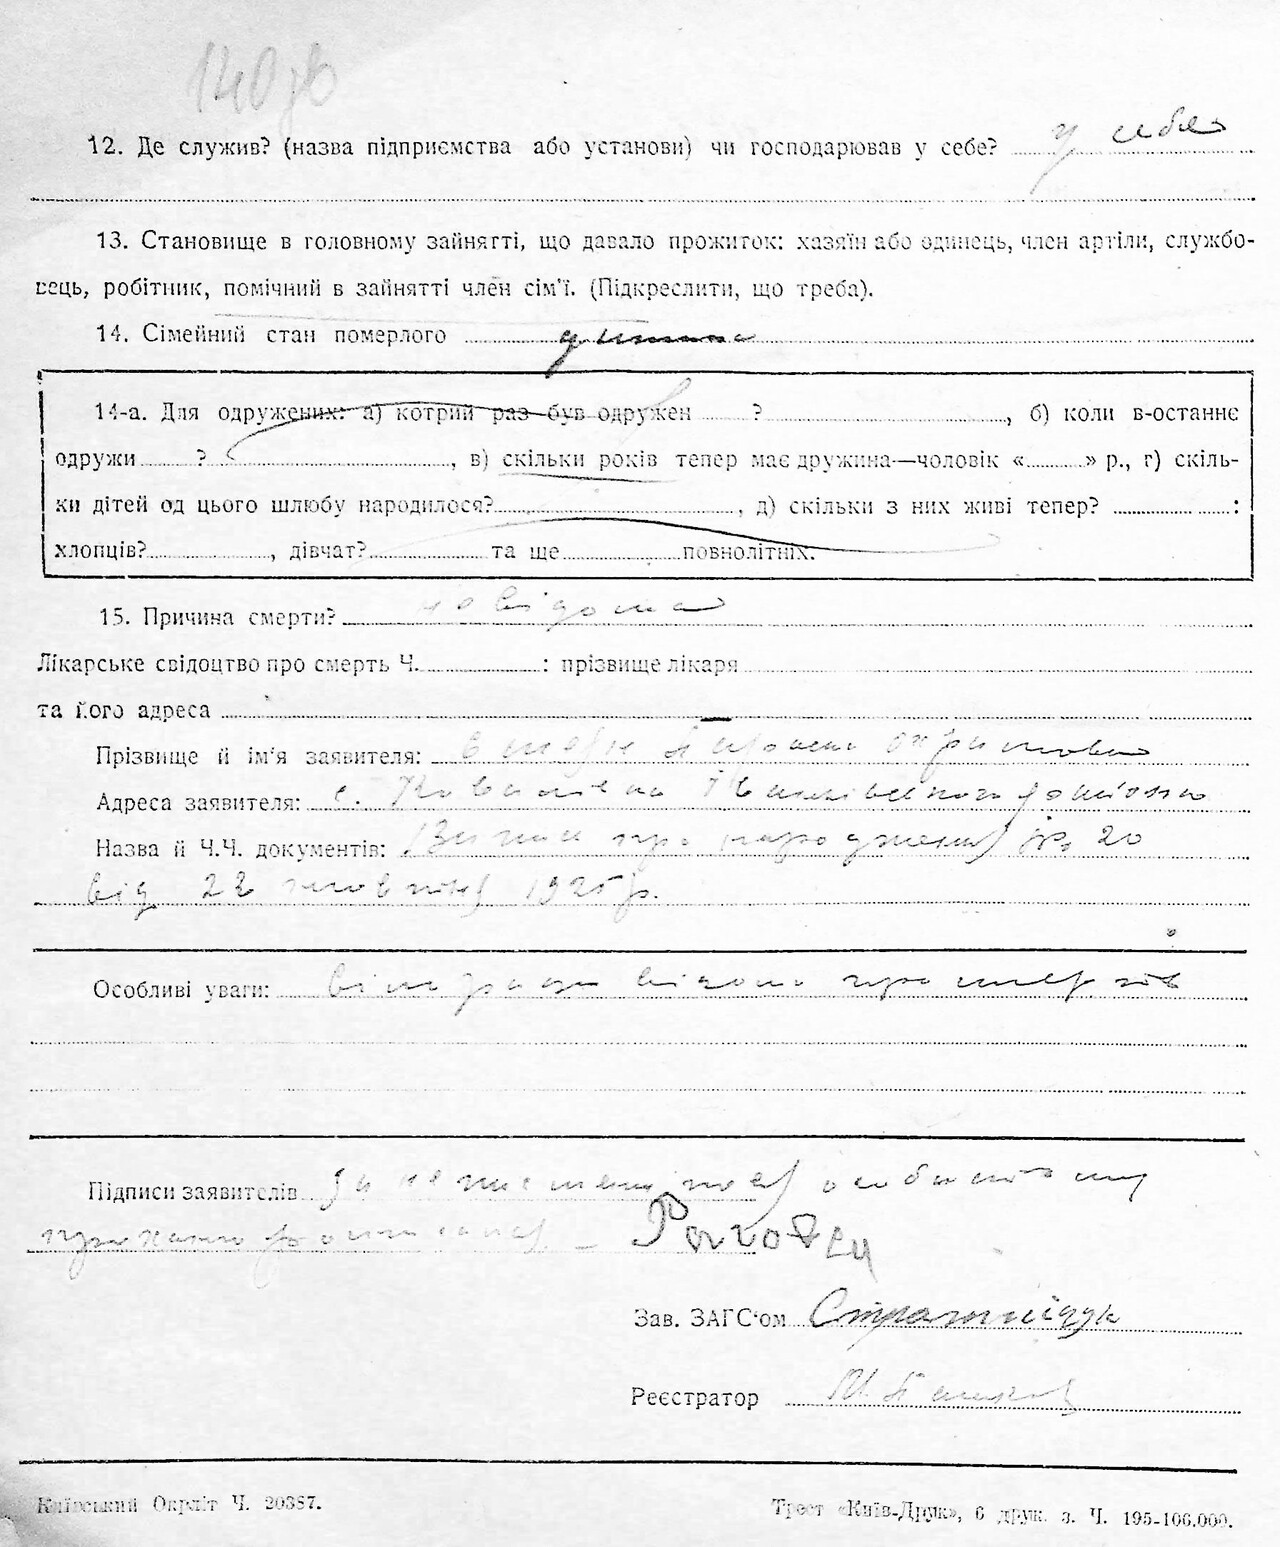 140 зв
12. Де служив? (назва підприємства або установи) чи господарював у себе? у себе
13. Становище в головному зайнятті, що давало прожиток: хазяїн або одинець, член артіли, службо-
вець, робітник, помічний в зайнятті член сім'ї. (Підкреслити, що треба).
14. Сімейний стан померлого дитина
14-а. Для одружених: а) котрий раз був одружен ? , б) коли в-останнє
одружи ? , в) скільки років тепер має дружина—чоловік « » р., г) скіль-
ки дітей од цього шлюбу народилося? , д) скільки з них живі тепер? :
хлопців? , дівчат? та ще повнолітніх.
15. Причина смерти? невідома
Лікарське свідоцтво про смерть Ч. : прізвище лікаря
та його адреса
Прізвище й ім'я заявителя:
Адреса заявителя: с.
Назва й Ч.Ч. документів: про народження № 20
від 22 жовтня 1925 р.
Особливі уваги:
Підписи заявителів За неписьменної особистому
проханню розписався —
Зав. ЗАГС'ом
Реєстратор
Київський Окрліт Ч. 20387.
Трест «Київ-Друк», 6 друк. з. Ч. 195-106.000.